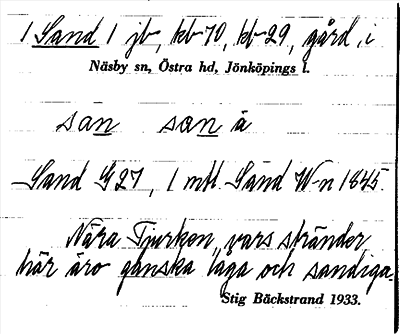 1 Sand 1 jb, kb-70, kb-29, gård i
Näsby sn, Östra hd, Jönköpings l.
san san å
Sand G27, 1 mtl. Sand W-n 1845.
Nära Tjurken, vars stränder
här äro ganska låga och sandiga.
Stig Bäckstrand 1933.